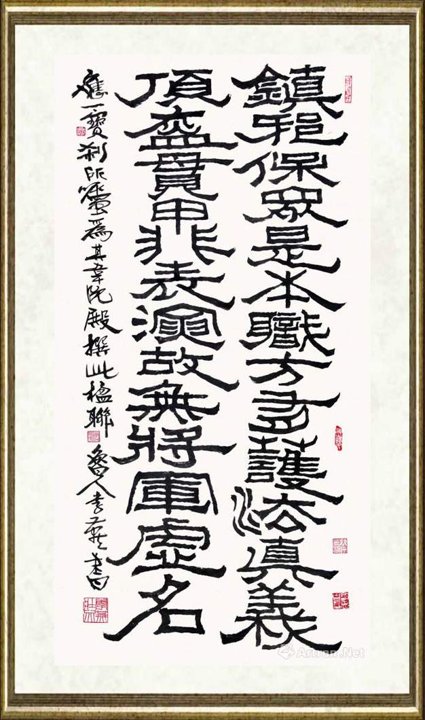 鎮邪保眾是本職方盡護法真義
頂盔貫甲非表演故無將軍虛名
應一寶刹所囑為其韋馱殿撰此楹聯
魯人李燕書
Artron.Net